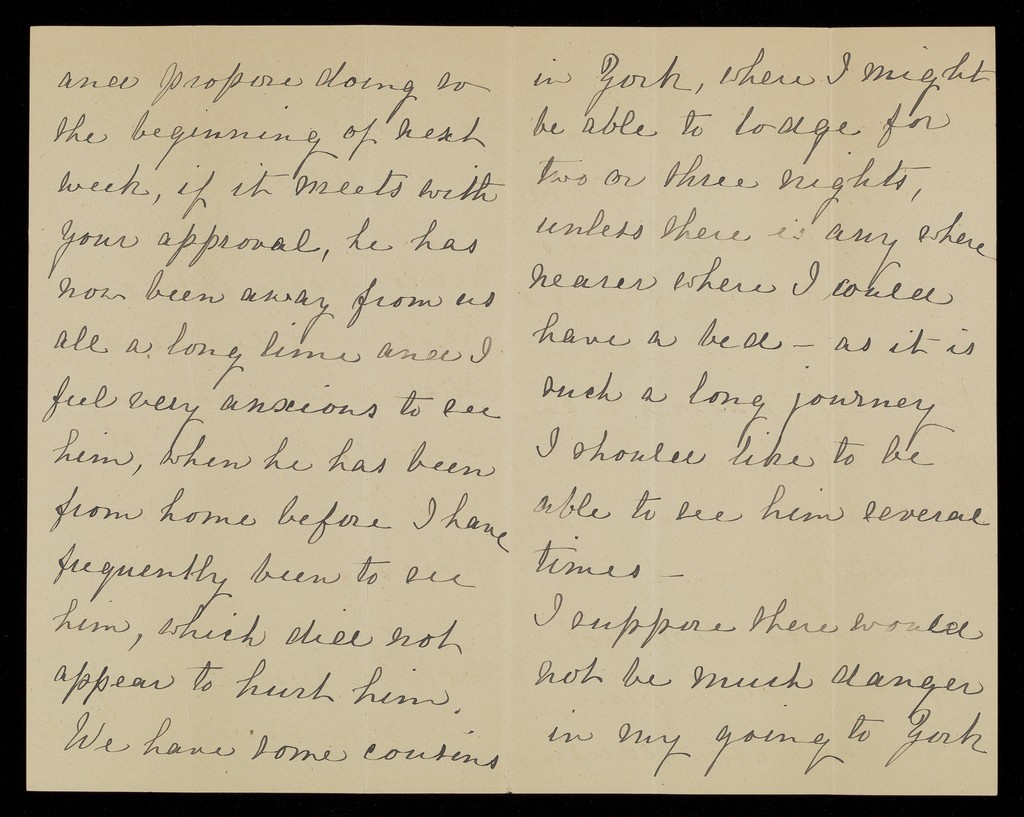 and propose doing so
the beginning of next
week, if it meets with
your approval, he has
now been away from us
all a long time and I
feel very anxious to see
him, when he has been
from home before I have
frequently been to see
him, which did not
appear to hurt him.
We have some cousins
in York, where I might
be able to lodge for
two or three nights,
unless there is any where
nearer where I could
have a bed – as it is
such a long journey
I should like to be
able to see him several
times –
I suppose there would
not be much danger
in my going to York